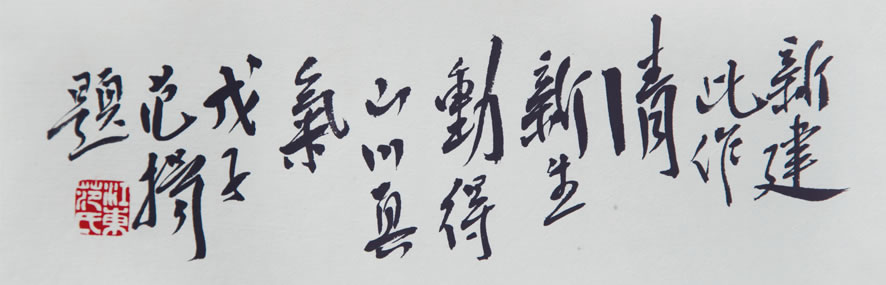 新建
此作
清
新生
動得
山川真
氣
戊子
范揚
題
江東
范氏